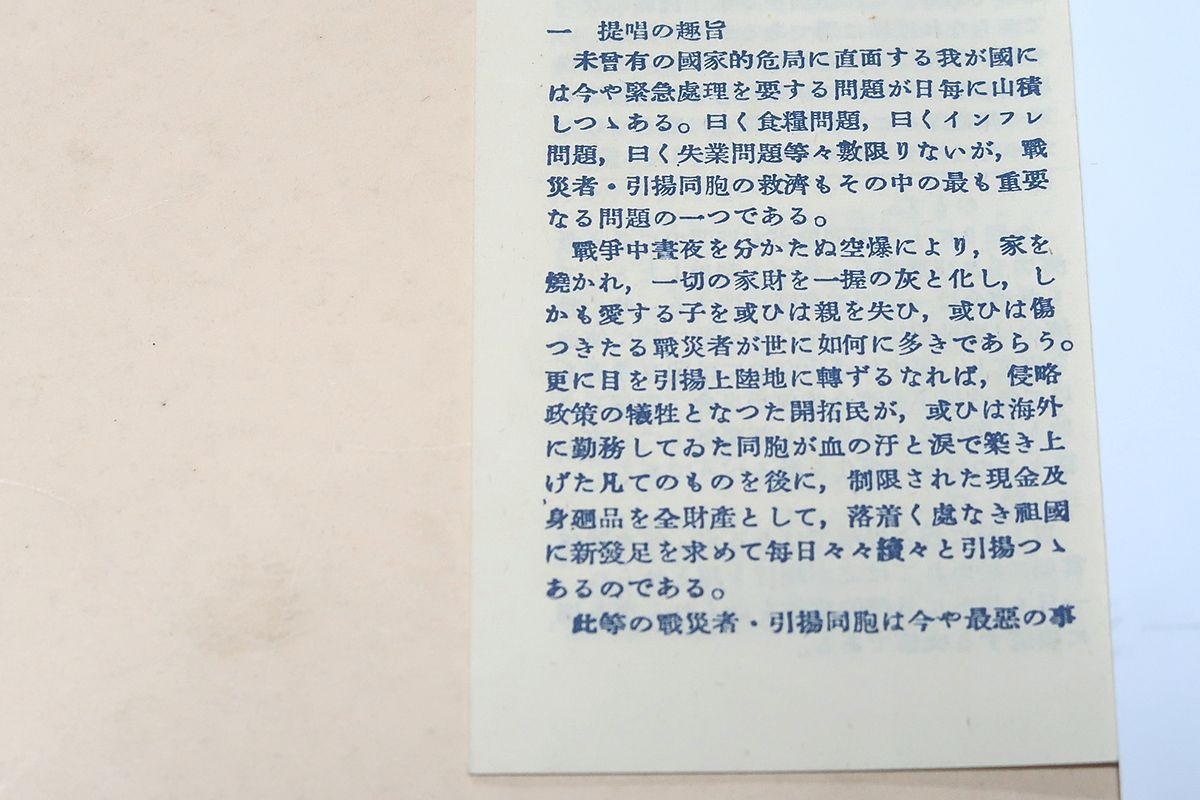 一　提唱の趣旨
未曾有の國家的危局に直面する我が國に
は今や緊急處理を要する問題が日每に山積
しつゝある。曰く食糧問題，曰くインフレ
問題，曰く失業問題等々數限りないが，戰
災者・引揚同胞の救濟もその中の最も重要
なる問題の一つである。
戰爭中晝夜を分かたぬ空爆により，家を
燒かれ，一切の家財を一握の灰と化し，し
かも愛する子を或ひは親を失ひ，或ひは傷
つきたる戰災者が世に如何に多きであらう。
更に目を引揚上陸地に轉ずるなれば，侵略
政策の犧牲となつた開拓民が，或ひは海外
に勤務してゐた同胞が血の汙と淚で築き上
げた凡てのものを後に，制限された現金及
身廻品を全財產として，落着く處なき祖國
に新發足を求めて每日々々續々と引揚つゝ
あるのである。
此等の戰災者・引揚同胞は今や最惡の事